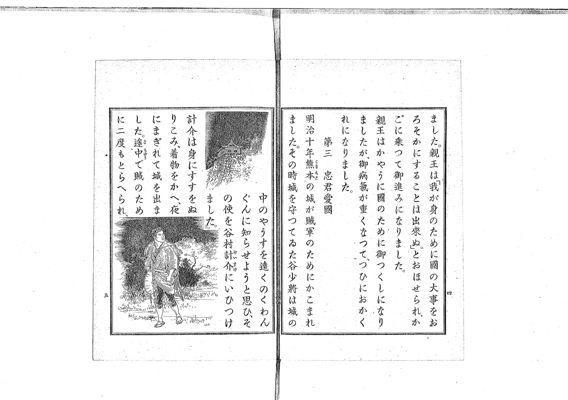 ました。親王は「我が身のために國の大事をお
ろそかにすることは出來ぬ。」とおほせられ、か
ごに乘つて御進みになりました。
親王はかやうに國のために御つくしになり
ましたが、御病氣が重くなつて、つひにおかく
れになりました。
第三 忠君愛國
明治十年熊本の城が賊軍のためにかこまれ
ました。その時城を守つてゐた谷少將は城の
四
中のやうすを遠くのくわん
ぐんに知らせようと思ひ、そ
の使を谷村計介にいひつけ
ました。
計介は身にすすをぬ
りこみ、着物をかへ、夜
にまぎれて城を出ま
した。途中で賊のため
に二度もとらへられ、
五